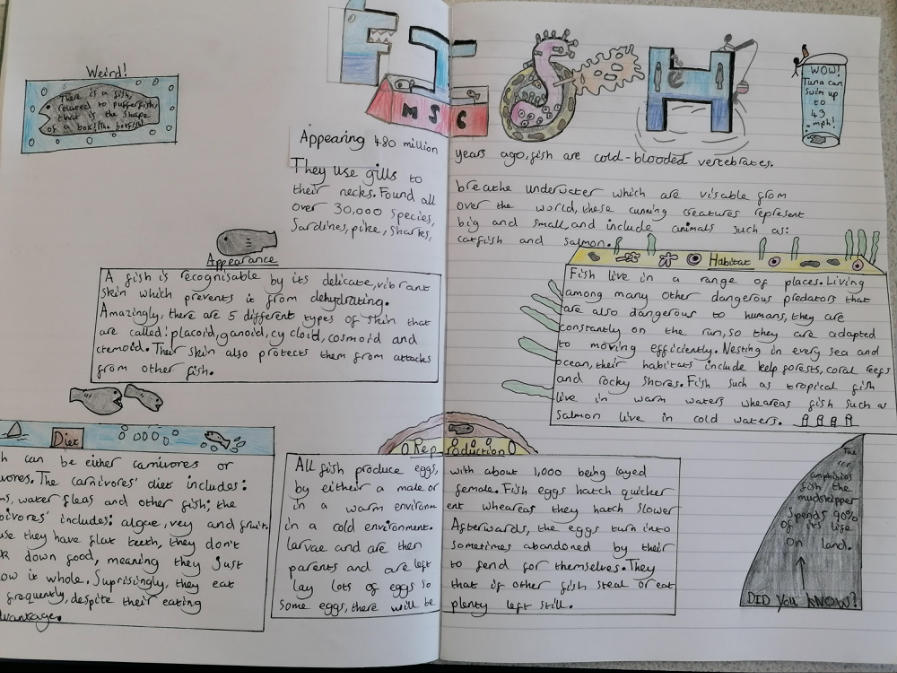 FISH
MSC
Weird!
There is a fish,
related to pufferfish,
that is the shape
of a box! The boxfish!
WOW!
Tuna can
swim up
to
43
mph!
Appearing 480 million years ago, fish are cold-blooded vertebrates.
They use gills to breathe underwater which are visable from
their necks. Found all over the world, these cunning creatures represent
over 30,000 species, big and small, and include animals such as:
Sardines, pike, sharks, catfish and salmon.
Appearance
A fish is recognisable by its delicate, vibrant
skin which prevents it from dehydrating.
Amazingly, there are 5 different types of skin that
are called: placoid, ganoid, cycloid, cosmoid and
ctenoid. Their skin also protects them from attacks
from other fish.
Habitat
Fish live in a range of places. Living
among many other dangerous predators that
are also dangerous to humans, they are
constantly on the run, so they are adapted
to moving efficiently. Nesting in every sea and
ocean, their habitats include kelp forests, coral reefs
and rocky shores. Fish such as tropical fish
live in warm waters wheareas fish such as
salmon live in cold waters.
Diet
h can be either carnivores or
vores. The carnivores' diet includes:
ms, water fleas and other fish; the
bivores' includes: algae, vey and fruit.
use they have flat teeth, they don't
down food, meaning they just
ow it whole. Suprisingly, they eat
frequently, despite their eating
dvantage.
Reproduction
All fish produce eggs, with about 1,000 being layed
by either a male or female. Fish eggs hatch quicker
in a warm environment wheareas they hatch slower
in a cold environment. Afterwards, the eggs turn into
larvae and are then sometimes abandoned by their
parents and are left to fend for themselves. They
lay lots of eggs so that if other fish steal or eat
some eggs, there will be plenty left still.
The
amphibios
fish, the
mudskipper
spends 90%
of its life
on land.
DID you KNOW?